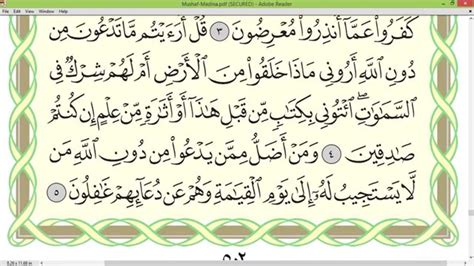 Mushaf-Madina.pdf (SECURED) - Adobe Reader
كَفَرُوا۟ عَمَّآ أُنذِرُوا۟ مُعْرِضُونَ ٣ قُلْ أَرَءَيْتُم مَّا تَدْعُونَ مِن
دُونِ ٱللَّهِ أَرُونِى مَاذَا خَلَقُوا۟ مِنَ ٱلْأَرْضِ أَمْ لَهُمْ شِرْكٌ فِى
ٱلسَّمَٰوَٰتِ ۖ ٱئْتُونِى بِكِتَٰبٍ مِّن قَبْلِ هَٰذَآ أَوْ أَثَٰرَةٍ مِّنْ عِلْمٍ إِن كُنتُمْ
صَٰدِقِينَ ٤ وَمَنْ أَضَلُّ مِمَّن يَدْعُوا۟ مِن دُونِ ٱللَّهِ مَن
لَّا يَسْتَجِيبُ لَهُۥٓ إِلَىٰ يَوْمِ ٱلْقِيَٰمَةِ وَهُمْ عَن دُعَآئِهِمْ غَٰفِلُونَ ٥
٥٠٢
8.26 x 11.69 in